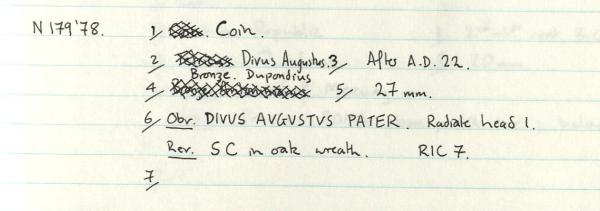 N 179'78. 1/ Coin.
2/ Divus Augustus. 3/ After A.D. 22.
4/ Bronze. Dupondius 5/ 27 mm.
6/ Obv. DIVUS AVGVSTVS PATER. Radiate head l.
Rev. SC in oak wreath. RIC 7.
7/